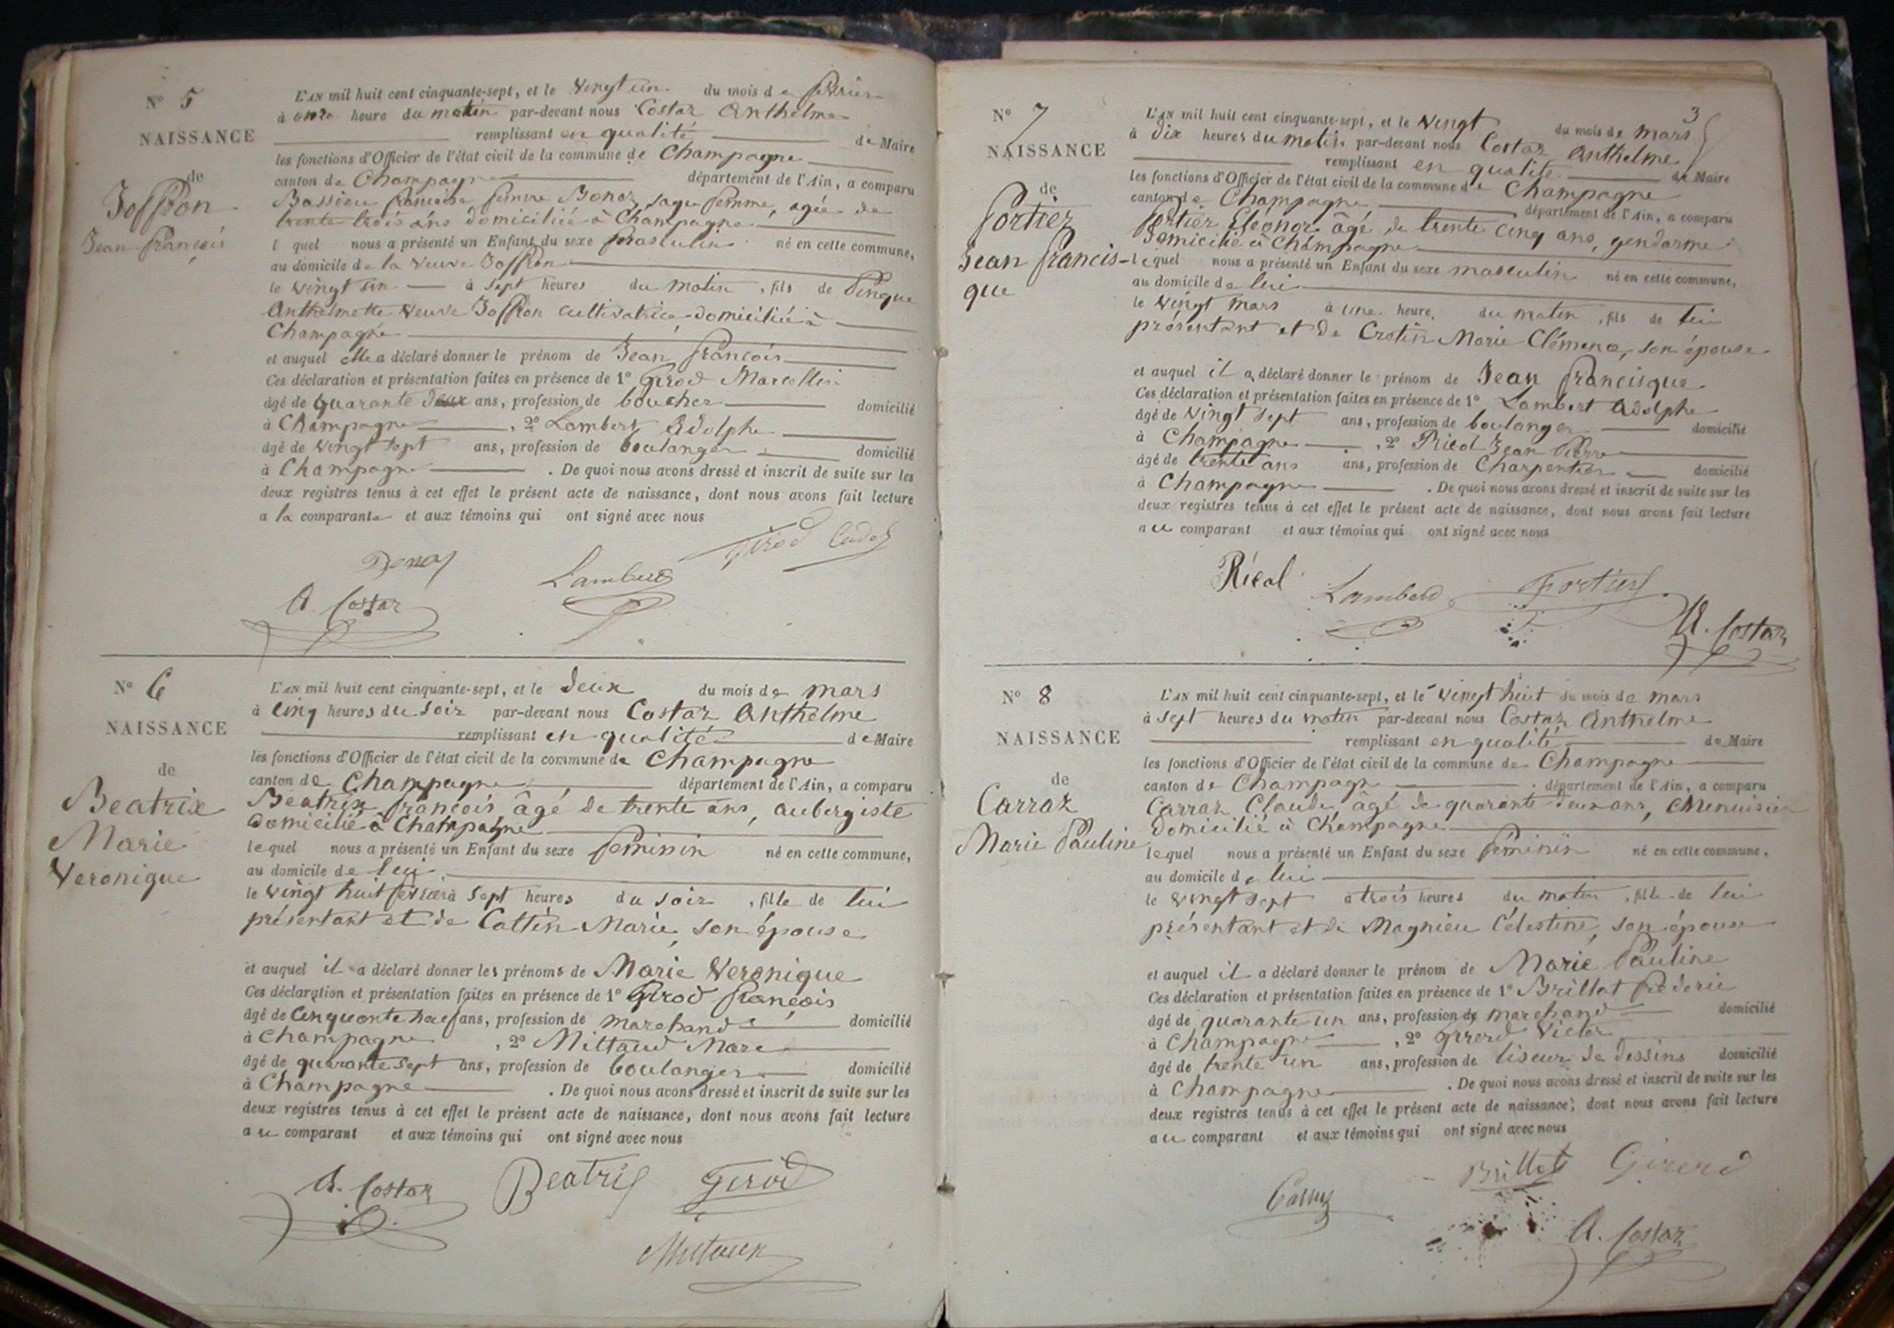 N° 5
NAISSANCE
de
Joffron
Jean françois
L'AN mil huit cent cinquante-sept, et le vingt un du mois de février
à onze heure du matin par-devant nous Costaz Anthelme
remplissant en qualité de Maire
les fonctions d'Officier de l'état civil de la commune de Champagne
canton de Champagne département de l'Ain, a comparu
françoise femme sage femme, agée de
trente trois ans domiciliée à Champagne
l quel nous a présenté un Enfant du sexe masculin né en cette commune,
au domicile de la veuve Joffron
le vingt un à sept heures du matin, fils de
Anthelmette veuve Joffron cultivatrice domiciliée à
Champagne
et auquel elle a déclaré donner le prénom de Jean françois
Ces déclaration et présentation faites en présence de 1° Girod Marcellin
âgé de quarante deux ans, profession de boucher domicilié
à Champagne, 2° Lambert Adolphe
âgé de vingt sept ans, profession de boulanger domicilié
à Champagne. De quoi nous avons dressé et inscrit de suite sur les
deux registres tenus à cet effet le présent acte de naissance, dont nous avons fait lecture
a la comparante et aux témoins qui ont signé avec nous
Girod
Lambert
A. Costaz
N° 6
NAISSANCE
de
Beatrix
Marie
Veronique
L'AN mil huit cent cinquante-sept, et le deux du mois de mars
à cinq heures du soir par-devant nous Costaz Anthelme
remplissant en qualité de Maire
les fonctions d'Officier de l'état civil de la commune de Champagne
canton de Champagne département de l'Ain, a comparu
Beatrix françois âgé de trente ans, aubergiste
domicilié à Champagne
lequel nous a présenté un Enfant du sexe feminin né en cette commune,
au domicile de lui
le vingt huit fevrier à sept heures du soir, fille de lui
présentant et de Cattin Marie, son épouse
et auquel il a déclaré donner les prénoms de Marie Veronique
Ces déclaration et présentation faites en présence de 1° Girod françois
âgé de cinquante neuf ans, profession de marchand domicilié
à Champagne, 2° Mittaud Marc
âgé de quarante sept ans, profession de boulanger domicilié
à Champagne. De quoi nous avons dressé et inscrit de suite sur les
deux registres tenus à cet effet le présent acte de naissance, dont nous avons fait lecture
au comparant et aux témoins qui ont signé avec nous
A. Costaz Beatrix Girod
3
N° 7
NAISSANCE
de
fortier
Jean francis-
que
L'AN mil huit cent cinquante-sept, et le vingt du mois de mars
à dix heures du matin par-devant nous Costaz Anthelme
remplissant en qualité de Maire
les fonctions d'Officier de l'état civil de la commune de Champagne
canton de Champagne département de l'Ain, a comparu
fortier Eléonor âgé de trente cinq ans, gendarme
domicilié à Champagne
lequel nous a présenté un Enfant du sexe masculin né en cette commune,
au domicile de lui
le vingt mars à une heure, du matin, fils de lui
présentant et de Crotin Marie Clémence, son épouse
et auquel il a déclaré donner le prénom de Jean francisque
Ces déclaration et présentation faites en présence de 1° Lambert Adolphe
âgé de vingt sept ans, profession de boulanger domicilié
à Champagne, 2° Rieol Jean Pierre
âgé de trente ans ans, profession de Charpentier domicilié
à Champagne. De quoi nous avons dressé et inscrit de suite sur les
deux registres tenus à cet effet le présent acte de naissance, dont nous avons fait lecture
au comparant et aux témoins qui ont signé avec nous
Rieol Lambert Fortier
A. Costaz
N° 8
NAISSANCE
de
Carraz
Marie Pauline
L'AN mil huit cent cinquante-sept, et le vingt huit du mois de mars
à sept heures du matin par-devant nous Costaz Anthelme
remplissant en qualité de Maire
les fonctions d'Officier de l'état civil de la commune de Champagne
canton de Champagne département de l'Ain, a comparu
Carraz Claude, âgé de quarante deux ans, Menuisier
domicilié à Champagne
lequel nous a présenté un Enfant du sexe feminin né en cette commune,
au domicile de lui
le vingt sept à trois heures du matin, fille de lui
présentant et de Magnieu Célestine, son épouse
et auquel il a déclaré donner le prénom de Marie Pauline
Ces déclaration et présentation faites en présence de 1° Brillat fréderic
âgé de quarante un ans, profession de marchand domicilié
à Champagne, 2° Girerd Victor
âgé de trente un ans, profession de liseur de dessins domicilié
à Champagne. De quoi nous avons dressé et inscrit de suite sur les
deux registres tenus à cet effet le présent acte de naissance, dont nous avons fait lecture
au comparant et aux témoins qui ont signé avec nous
Brillat Girerd
A. Costaz